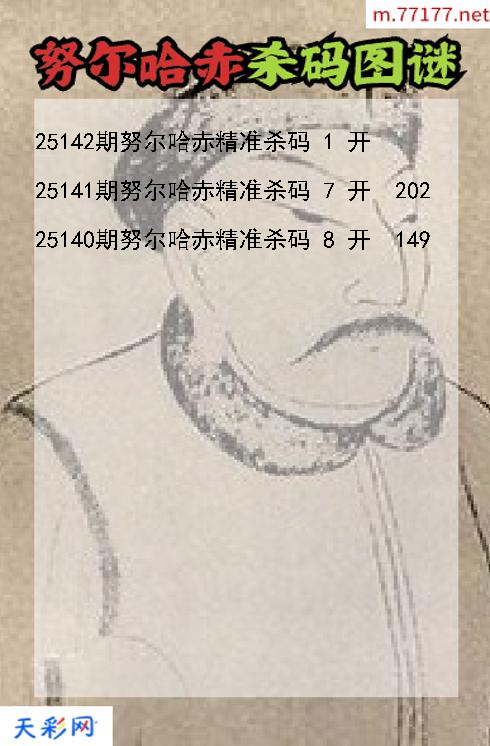 m.77177.net
努尔哈赤杀码图谜
25142期努尔哈赤精准杀码 1 开
25141期努尔哈赤精准杀码 7 开 202
25140期努尔哈赤精准杀码 8 开 149
天彩网